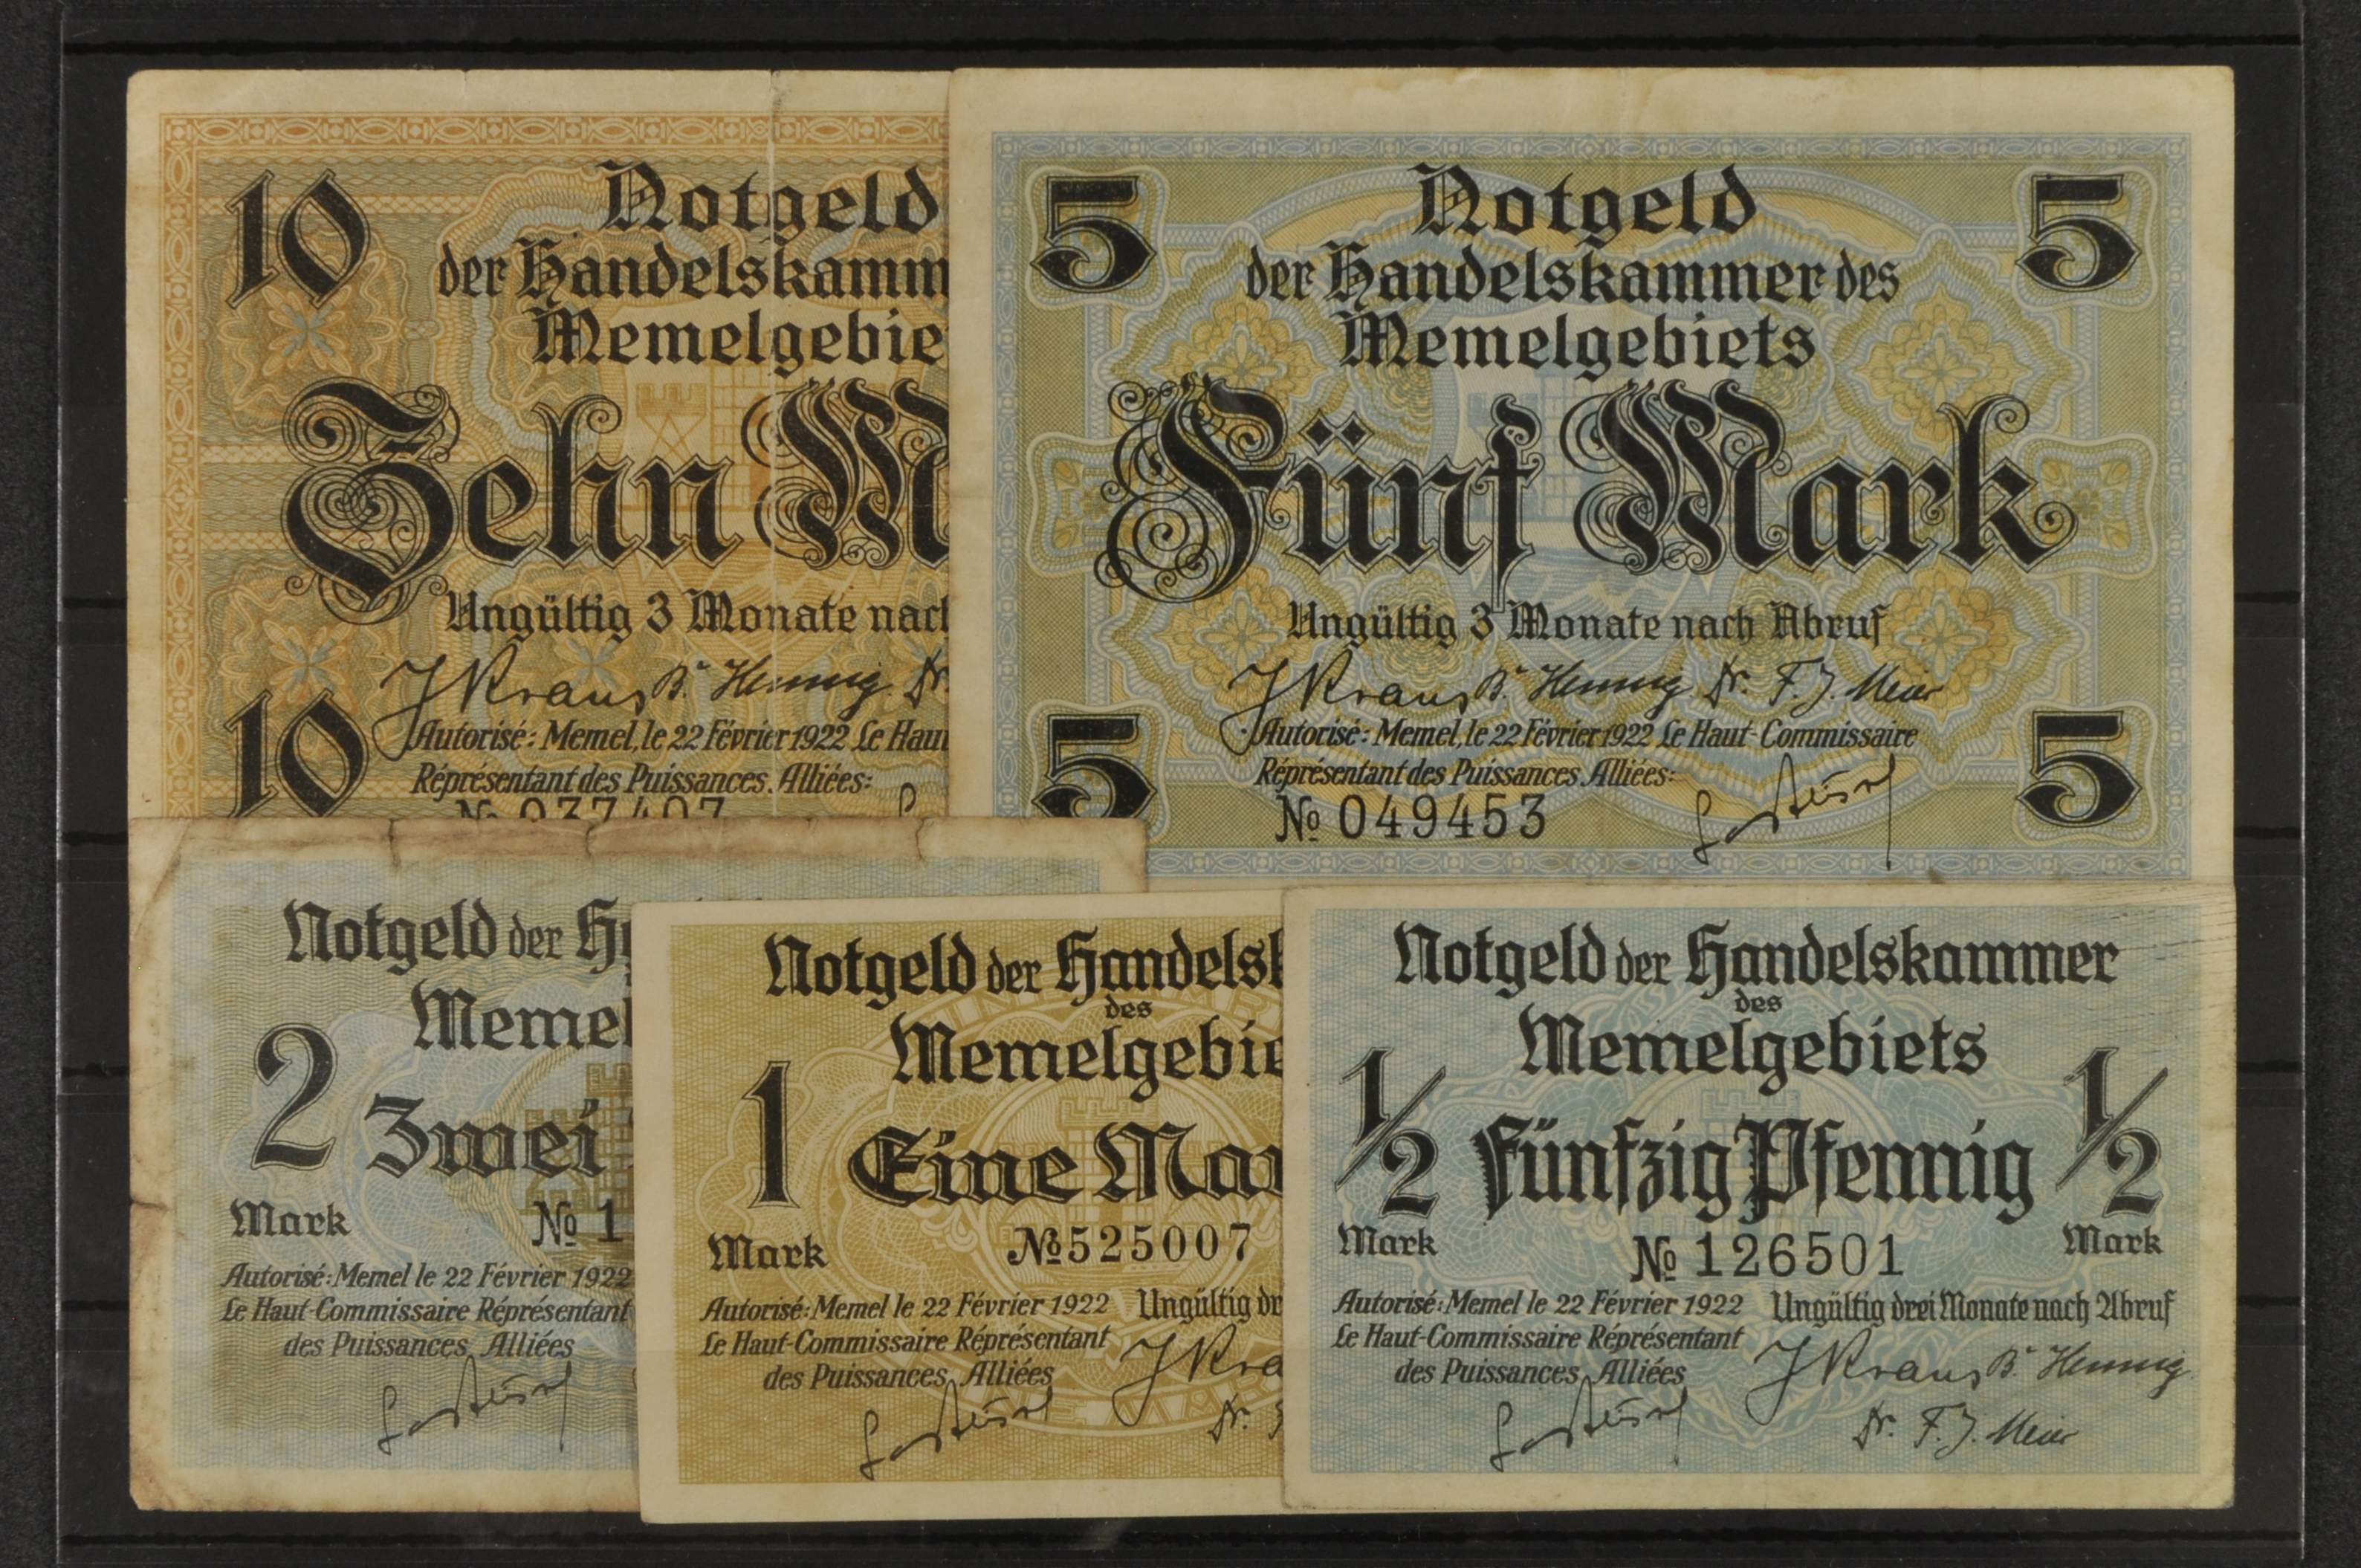 10
Notgeld
der Handelskamm
Memelgebie
Zehn M
Ungültig 3 Monate nach
J Kraus B. Hennig Dr.
Autorisé: Memel, le 22 Février 1922 Le Haut
Réprésentant des Puissances Alliées:
10
№ 037407
5 5
Notgeld
der Handelskammer des
Memelgebiets
Fünf Mark
Ungültig 3 Monate nach Abruf
J Kraus B. Hennig Dr. F. J. Meier
Autorisé: Memel, le 22 Février 1922 Le Haut-Commissaire
Réprésentant des Puissances Alliées:
5 5
№ 049453
Notgeld der Ha
Memel
2 Zwei
Mark № 1
Autorisé: Memel le 22 Février 1922
Le Haut-Commissaire Réprésentant
des Puissances Alliées
Notgeld der Handelsk
des
Memelgebie
1 Eine Mar
Mark № 525007
Autorisé: Memel le 22 Février 1922 Ungültig dr
Le Haut-Commissaire Réprésentant
des Puissances Alliées
J Kra
Dr.
Notgeld der Handelskammer
des
Memelgebiets
1/2 Fünfzig Pfennig 1/2
Mark № 126501 Mark
Autorisé: Memel le 22 Février 1922 Ungültig drei Monate nach Abruf
Le Haut-Commissaire Réprésentant
des Puissances Alliées
J Kraus B. Hennig
Dr. F. J. Meier